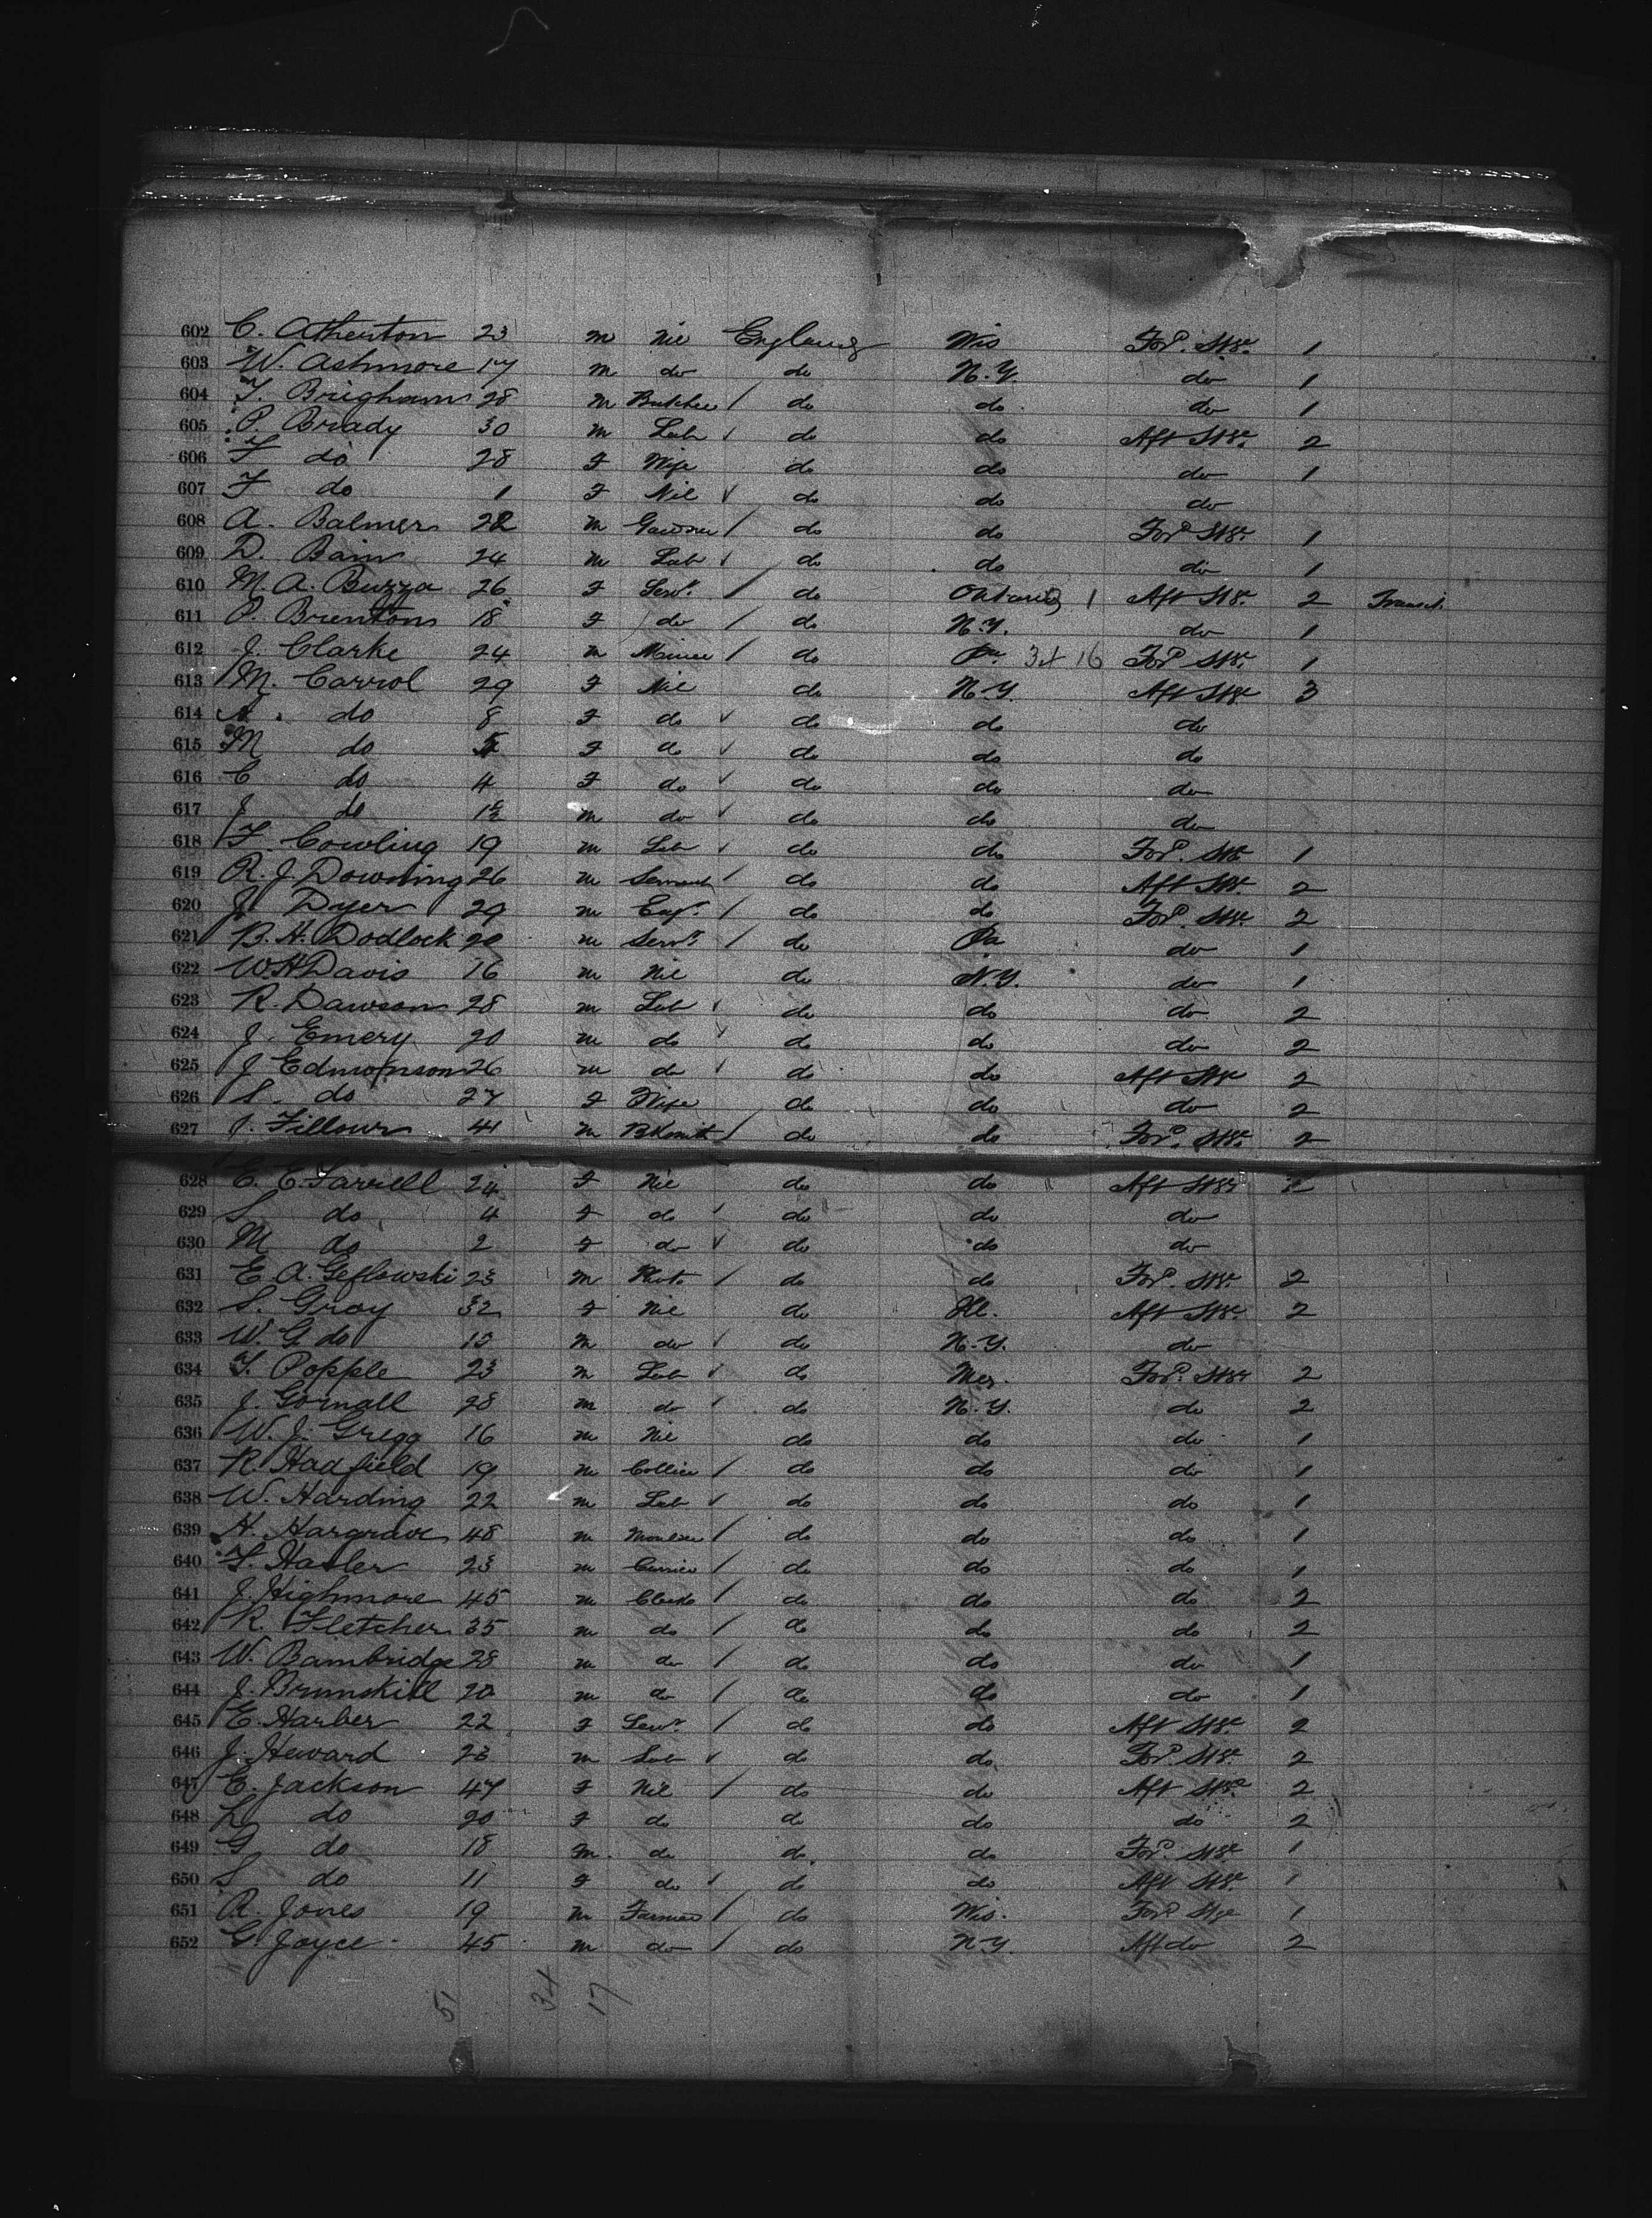 602 C. Atherton 23 m Nil England Wis Ford. Stge. 1
603 W. Ashmore 17 m do do N.Y. do 1
604 T. Brigham 28 m Butcher / do do do 1
605 P. Brady 30 m Lab ✓ do do Aft Stge. 2
606 F do 28 F Wife do do do 1
607 F do 1 F Nil ✓ do do do
608 A. Balmer 22 m Gardner / do do Ford Stge. 1
609 D. Bain 24 m Lab ✓ do do do 1
610 M.A. Buzza 26 F Servt. / do Ontario 1 Aft Stge. 2 Transit.
611 P. Brenton 18 F do / do N.Y. do 1
612 J. Clarke 24 m Miner / do Pa. 34 16 Ford Stge. 1
613 M. Carrol 29 F Nil do N.Y. Aft Stge 3
614 A. do 8 F do ✓ do do do
615 M do F do ✓ do do do
616 C do 4 F do ✓ do do do
617 J do m do ✓ do do do
618 F. Cowling 19 m Lab ✓ do do Ford. Stge 1
619 R.J. Downing 26 m Servant / do do Aft Stge 2
620 J. Dyer 29 m Engr. / do do Ford. Stge. 2
621 B.H. Dodlock 20 m Servt. / do Pa do 1
622 W.H Davis 16 m Nil do N.Y. do 1
623 R. Dawson 28 m Lab ✓ do do do 2
624 J. Emery 20 m do ✓ do do do 2
625 J Edmonson 26 m do ✓ do do Aft Stge 2
626 S. do 27 F Wife do do do 2
627 J. Fillour 44 m Bksmith / do do Ford. Stge. 2
628 E. E. Farrell 24 F Nil do do Aft Stge
629 S do 4 F do ✓ do do do
630 M do 2 F do ✓ do do do
631 E.A. Geflowski 23 m / do do Ford. Stge. 2
632 S. Gray 32 F Nil do Ill. Aft Stge. 2
633 W. G do m do ✓ do N.Y. do
634 T. Popple 23 m Lab ✓ do Ford. Stge 2
635 J. Gornall 28 m do ✓ do N.Y. do 2
636 W. J. Gregg 16 m Nil do do do 1
637 R. Hadfield 19 m Collier / do do do 1
638 W. Harding 22 m Lab ✓ do do do 1
639 H. Hargrave 48 m Moulder / do do do 1
640 Hasler 23 m Currier / do do do 1
641 J. Highmore 45 m Clerk / do do do 2
642 R. Fletcher 35 m do / do do do 2
643 W. Bambridge 28 m do / do do do 1
644 J. Brunskill 20 m do / do do do 1
645 E. Harber 22 F Servt. / do do Aft Stge. 2
646 J. Heward 23 m Lab ✓ do do Ford. Stge. 2
647 E. Jackson 47 F Nil / do do Aft Stge 2
648 L do 20 F do do do do 2
649 G do 18 m. do do. do Ford. Stge 1
650 S do 11 F do ✓ do do Aft Stge. 1
651 R. Jones 19 m Farmer / do Wis. Ford Stge 1
652 G. Joyce 45 m do / do N.Y. Aft do 2
51 34 17